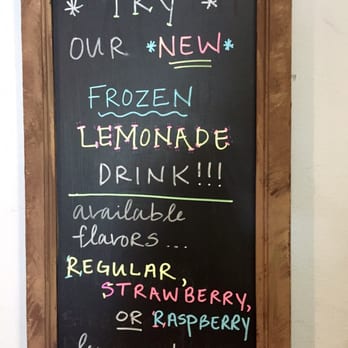 * TRY *
OUR *NEW*
FROZEN
LEMONADE
DRINK!!!
available
flavors...
REGULAR,
STRAWBERRY,
OR RASPBERRY